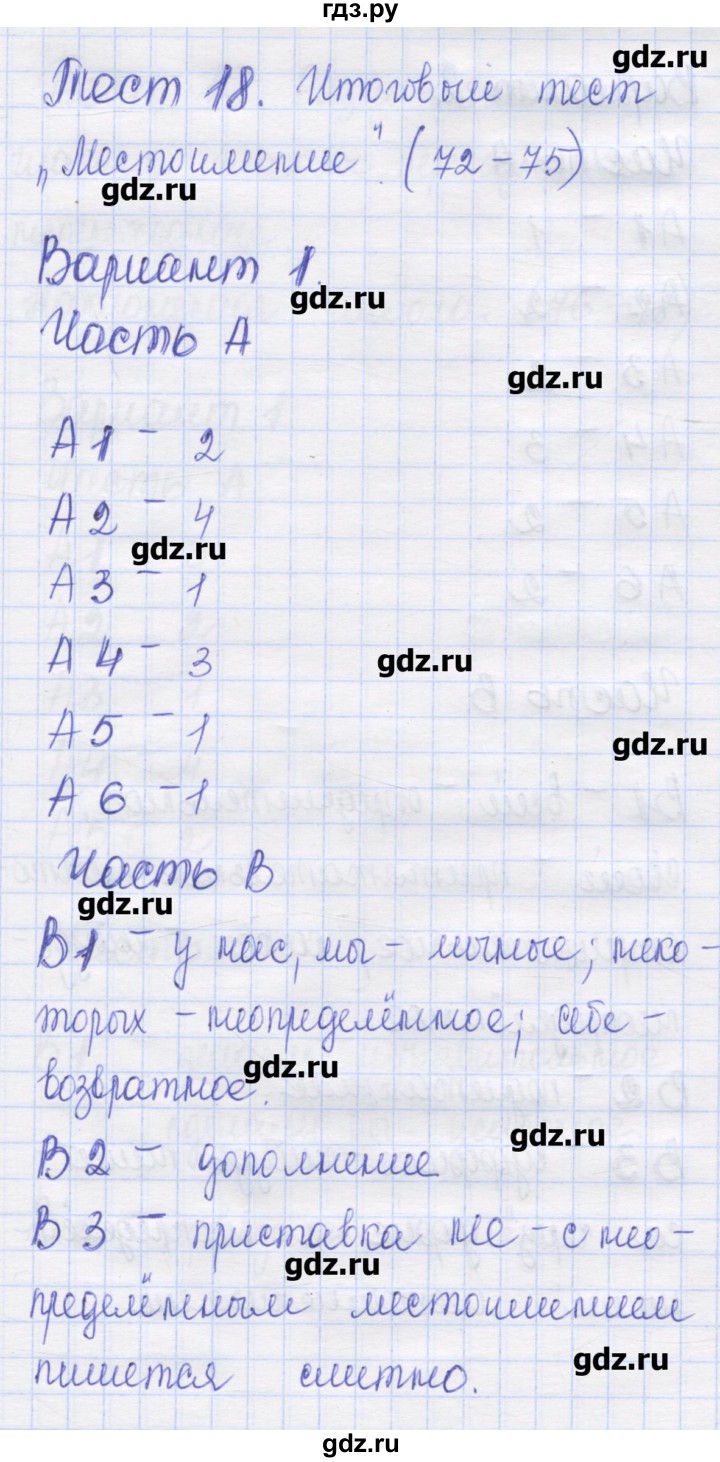 гдз.ру
gdz.ru
Тест 18. Итоговый тест
„Местоимение". (72-75)
gdz.ru
Вариант 1.
gdz.ru
Часть А
gdz.ru
А1 - 2
А2 - 4
gdz.ru
А3 - 1
А4 - 3
gdz.ru
А5 - 1
gdz.ru
А6 - 1
Часть В
gdz.ru
В1 - у нас, мы - личные; неко-
торых - неопределённое; себе -
gdz.ru
возвратное.
gdz.ru
В2 - дополнение
В3 - приставка не - с нео-
gdz.ru
пределённым местоимением
gdz.ru
пишется слитно.
gdz.ru